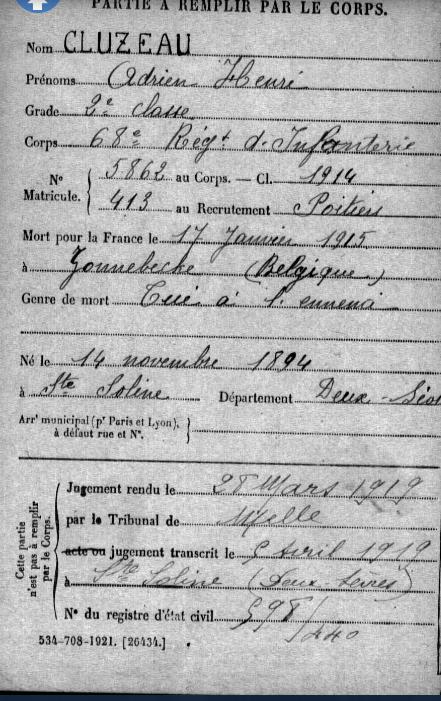 PARTIE À REMPLIR PAR LE CORPS.
Nom CLUZEAU
Prénoms Adrien Henri
Grade 2e classe
Corps 68e Régt d'Infanterie
N° Matricule. { 5862 au Corps. — Cl. 1914
413 au Recrutement Poitiers
Mort pour la France le 17 Janvier 1915
à Zonnebecke (Belgique)
Genre de mort Tué à l'ennemi
Né le 14 novembre 1894
à Ste Soline Département Deux-Sèv
Arrt municipal (pr Paris et Lyon),
à défaut rue et N°.
Cette partie n'est pas à remplir par le Corps.
Jugement rendu le Mars 1919
par le Tribunal de Melle
acte ou jugement transcrit le 5 avril 1919
à Ste Soline (Deux-Sevres)
N° du registre d'état civil
534-708-1921. [26434.]